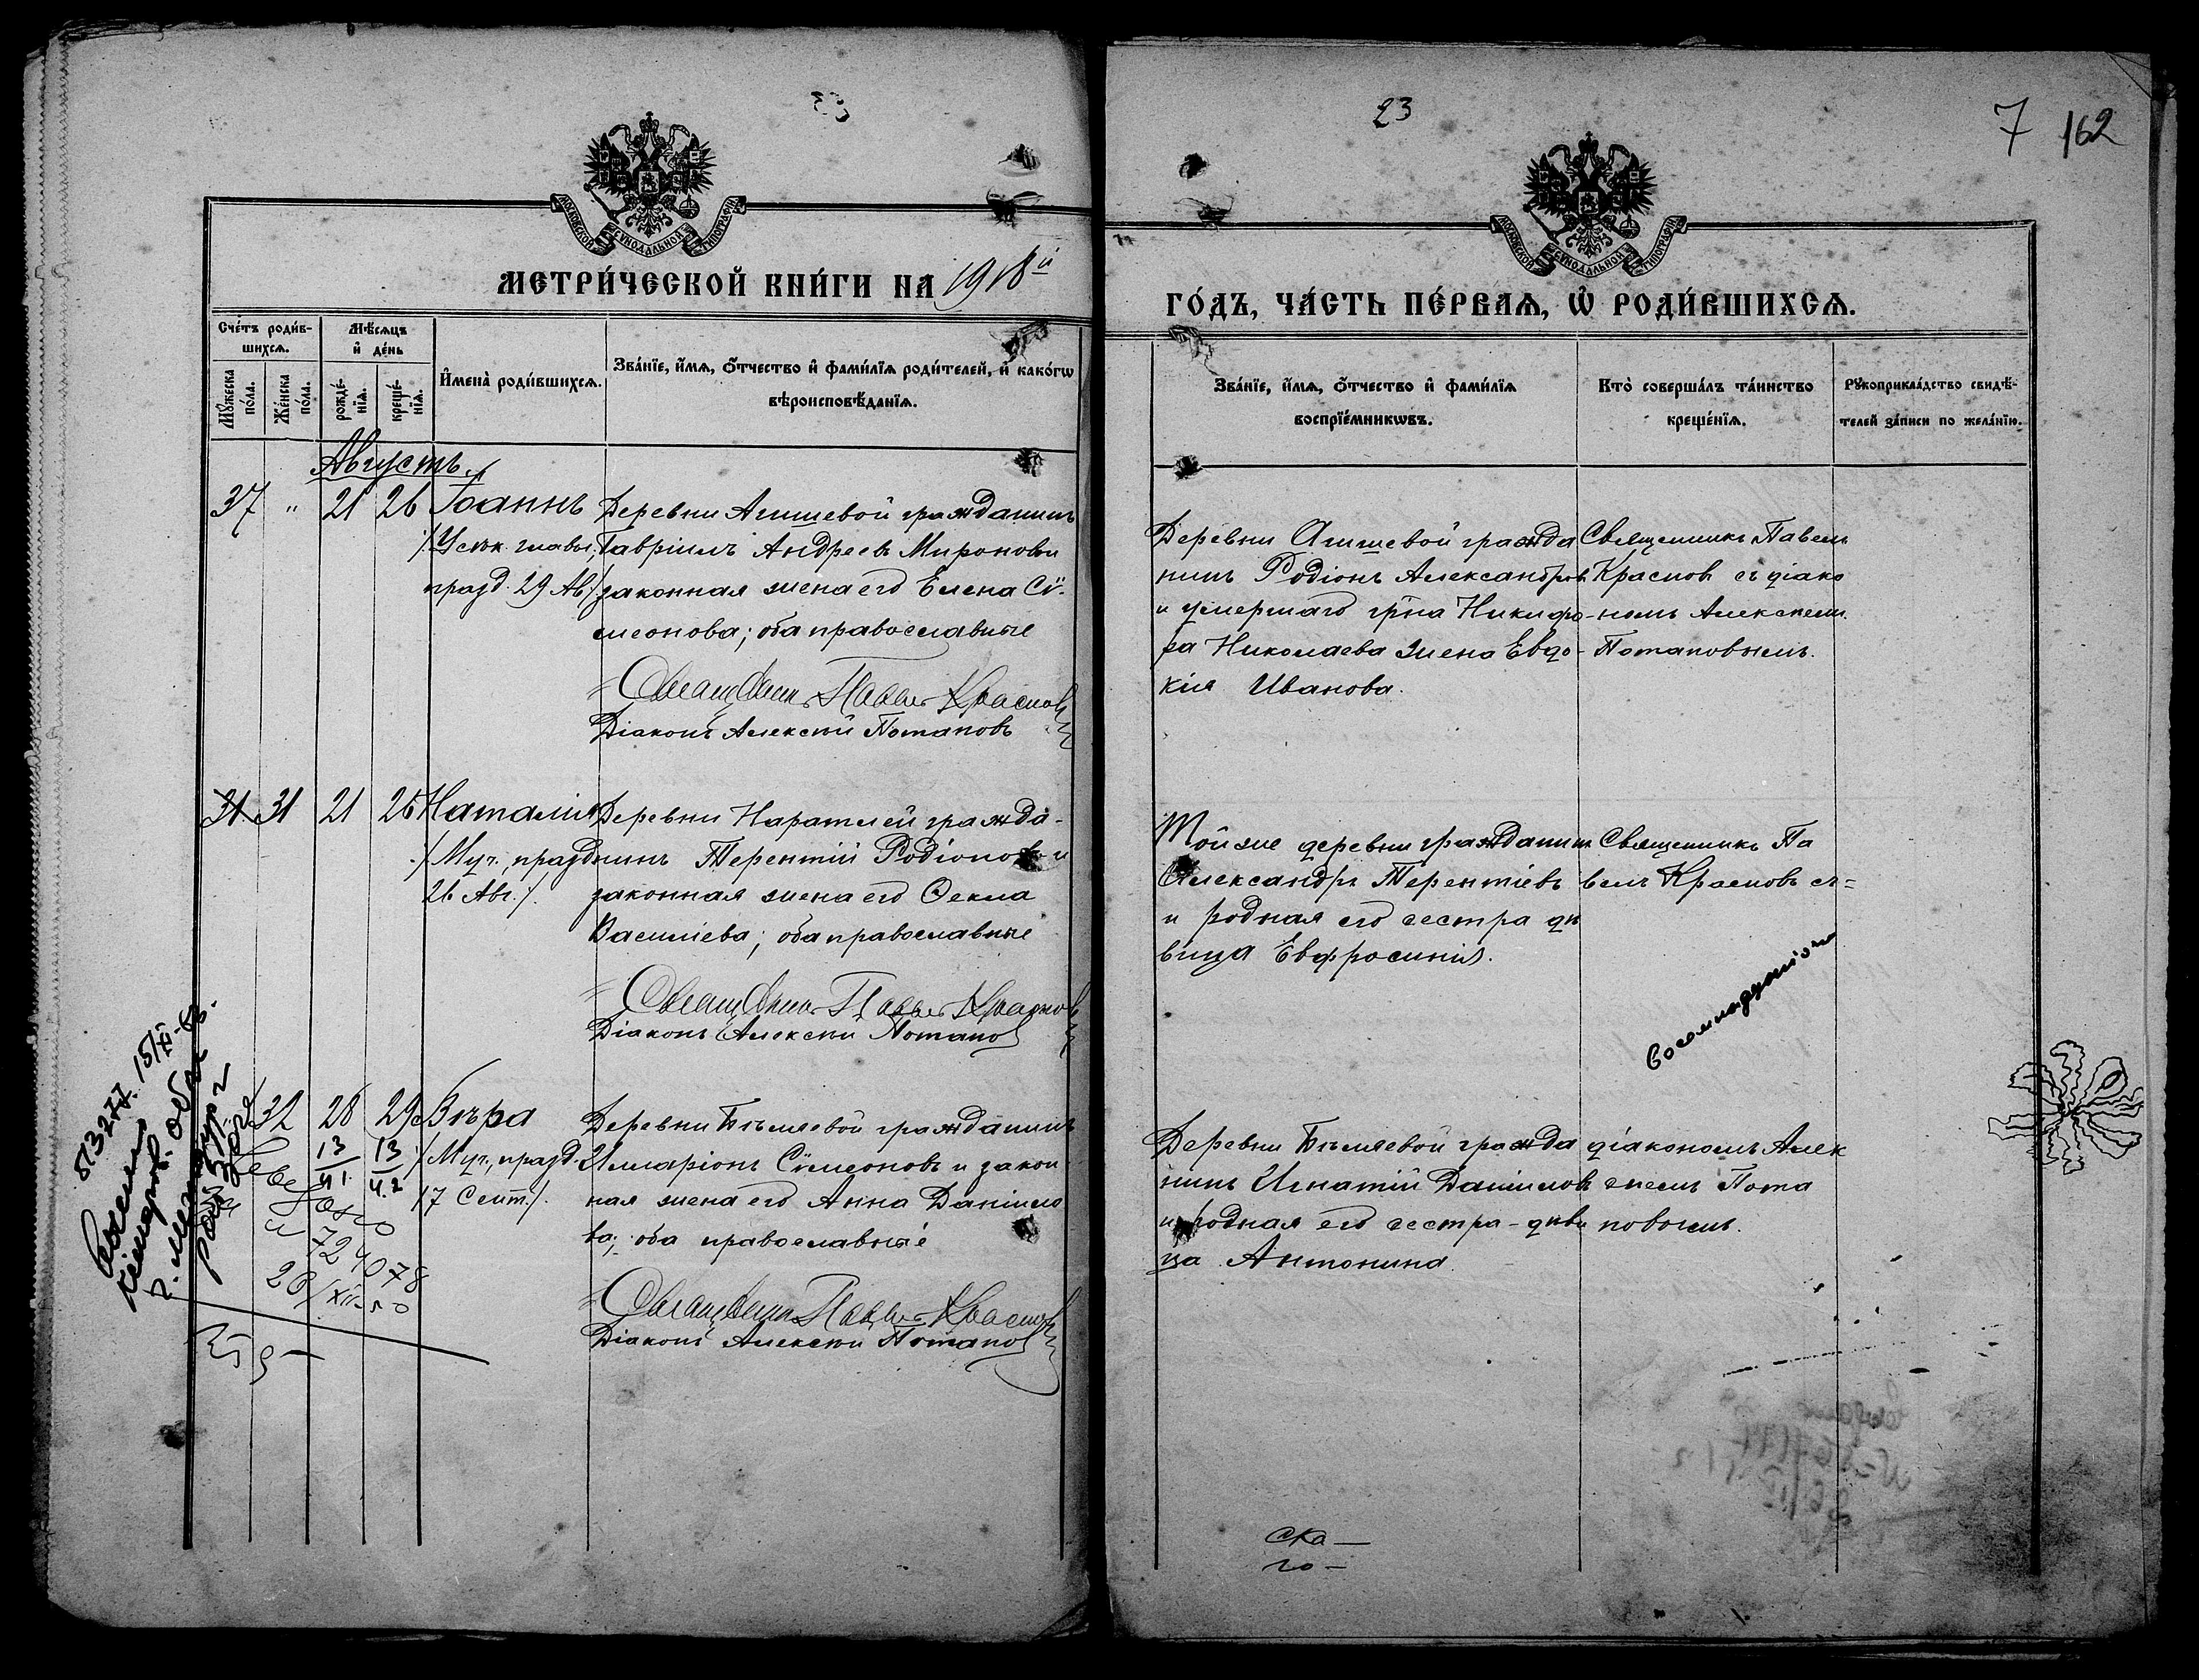 23
7 162
МОСКОВСКОЙ СѴНОДАЛЬНОЙ ТИПОГРАФІИ
МОСКОВСКОЙ СѴНОДАЛЬНОЙ ТИПОГРАФІИ
МЕТРИ́ЧЕСКОЙ КНИ́ГИ НА 1918й
ГО́ДЪ, ЧА́СТЬ ПЕ́РВАѦ, Ѡ҆ РОДИ́ВШИХСѦ.
Сче́тъ роди́в-
шихсѧ.
Мѣ́сѧцъ
и҆ де́нь
Мꙋ́жеска по́ла.
Же́нска по́ла.
рожде́-
нїѧ.
креще́-
нїѧ.
И҆мена̀ роди́вшихсѧ.
Зва́нїе, и҆́мѧ, ѻ҆́тчество и҆ фами́лїѧ роди́телей, и҆ како́гѡ
вѣроисповѣ́данїѧ.
Зва́нїе, и҆́мѧ, ѻ҆́тчество и҆ фами́лїѧ
воспрїе́мникѡвъ.
Кто̀ соверша́лъ та́инство
креще́нїѧ.
Рꙋкоприкла́дство свидѣ́-
телей за́писи по жела́нїю.
Августъ.
37 " 21 26 Іоаннъ
/Усѣк. главы,
празд. 29 Ав/
Деревни Агишевой гражданинъ
Гавріилъ Андреевъ Мироновъ и
законная жена его Елена Сѵ-
меонова; оба православные
Священникъ Павелъ Красновъ
Діаконъ Алексѣй Потаповъ
Деревни Агишевой гражда
нинъ Родіонъ Александров
и умершаго гр-на Никифо-
ра Николаева жена Евдо-
кія Иванова.
Священникъ Павелъ
Красновъ съ діако
номъ Алексѣем.
Потаповымъ.
31 31 21 26 Наталія
/Муч., празд
26 Авг./.
Деревни Нарателей гражда-
нинъ Терентій Родіоновъ и
законная жена его Ѳекла
Васильева; оба православные
Священникъ Павелъ Красновъ
Діаконъ Алексѣй Потапов
Той же деревни гражданин
Александръ Терентіевъ
и родная его сестра дѣ
вица Евфросинія.
Священникъ Па
велъ Красновъ съ=
32 28 29 Вѣра
/Муч., празд.
17 Сент./.
13 13
Деревни Бѣляевой гражданинъ
Илларіонъ Сѵмеоновъ и закон
ная жена его Анна Данило
ва; оба православные
Священникъ Павелъ Красновъ
Діаконъ Алексѣй Потапов
Деревни Бѣляевой гражда
нинъ Игнатій Даниловъ
и родная его сестра - дѣви
ца Антонина
діакономъ Алек
сѣем Пота
повымъ.
724078
ска —
го —